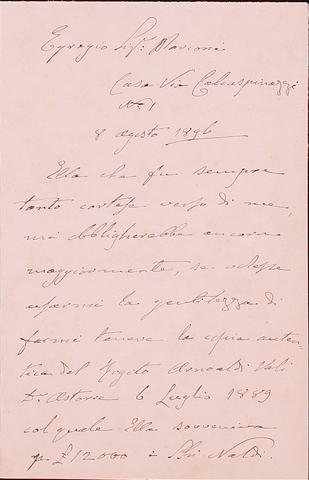 Egregio Sig.r Marconi
Casa Via Calcaspinazzi
N.o 1
8 agosto 1896
Ella che fu sempre
tanto cortese verso di me,
mi obbligherebbe ancora
maggiormente, se volesse
usarmi la gentilezza di
farmi tenere la copia auten-
tica del Rogito Arnoaldi Veli
Dr. Astorre 6 Luglio 1889
col quale Ella sovveniva
£ 12000 i Naldi.